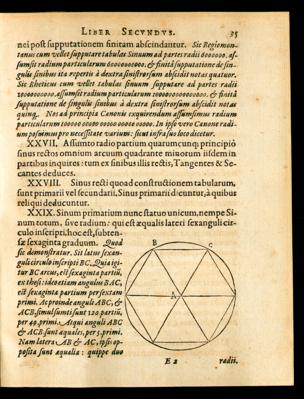 LIBER SECVNDVS. 35
nei post supputationem finitam abscindantur. Sic Regiomon-
tanus cum vellet supputare tabulas Sinuum ad partes radii 6000000. as-
sumsit radium particularum 60000000000. & finitâ supputatione de sin-
gulis sinibus ita repertis à dextra sinistrorsum abscidit notas quatuor.
Sic Rheticus cum vellet tabulas sinuum supputare ad partes radii
10000000000. assumsit radium particularum 1000000000000000. & finitâ
supputatione de singulis sinibus à dextra sinistrorsum abscidit notas
quinq. Nos ad principia Canonis exquirendum assumsimus radium
particularum 100000 00000 00000 00000 0000. In ipso vero Canone radi-
um posuimus pro necessitate varium: sicut infra suo loco dicetur.
XXVII. Assumto radio partium quarumcunq; principiò
sinus rectos omnium arcuum quadrante minorum iisdem in
partibus inquires: tum ex sinibus illis rectis, Tangentes & Se-
cantes deduces.
XXVIII. Sinus recti quoad constructionem tabularum,
sunt primarii vel secundarii. Sinus primarii dicuntur, à quibus
reliqui deducuntur.
XXIX. Sinum primarium nunc statuo unicum, nempe Si-
num totum, sive radium: qui est æqualis lateri sexanguli cir-
culo inscripti, hoc est, subten-
sæ sexaginta graduum. Quod
sic demonstratur. Sit latus sexan-
guli circulo inscripti BC. Quia igi-
tur BC arcus, est sexaginta partiū,
ex thesi: ideo etiam angulus BAC,
est sexaginta partium per sextam
primi. Ac proinde anguli ABC, &
ACB simul sumti sunt 120 partiū,
per 49. primi. Atqui anguli ABC
& ACB sunt æquales, per 5. primi.
Nam latera AB & AC. ipsi op-
posita sunt æqualia: quippe duo
B
C
A
E 2 radii.